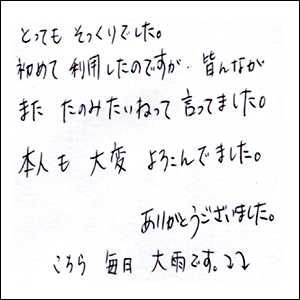 とっても そっくりでした。
初めて 利用したのですが、皆んなが
また たのみたいねって 言ってました。
本人も 大変 よろこんでました。
ありがとうございました。
こちら 毎日 大雨です。